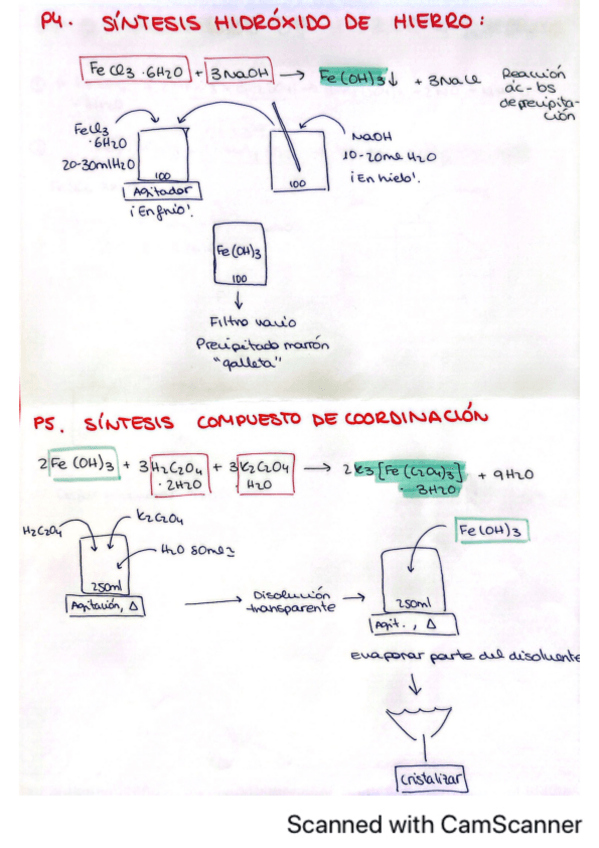 P4. SÍNTESIS HIDRÓXIDO DE HIERRO:
FeCl3 ·6H2O + 3NaOH → Fe(OH)3↓ + 3NaCl
Reacción
ác-bs
de precipita-
ción
FeCl3
·6H2O
20-30ml H2O
100
Agitador
¡En frío!
100
NaOH
10-20ml H2O
¡En hielo!
Fe(OH)3
100
Filtro vacío
Precipitado marrón
"galleta"
P5. SÍNTESIS COMPUESTO DE COORDINACIÓN
2Fe(OH)3 + 3H2C2O4 ·2H2O + 3K2C2O4 ·H2O → 2K3[Fe(C2O4)3] ·3H2O + 9H2O
H2C2O4
K2C2O4
H2O 80ml
250ml
Agitación, Δ
Disolución
transparente
Fe(OH)3
250ml
Agit., Δ
Evaporar parte del disolvente
Cristalizar
Scanned with CamScanner